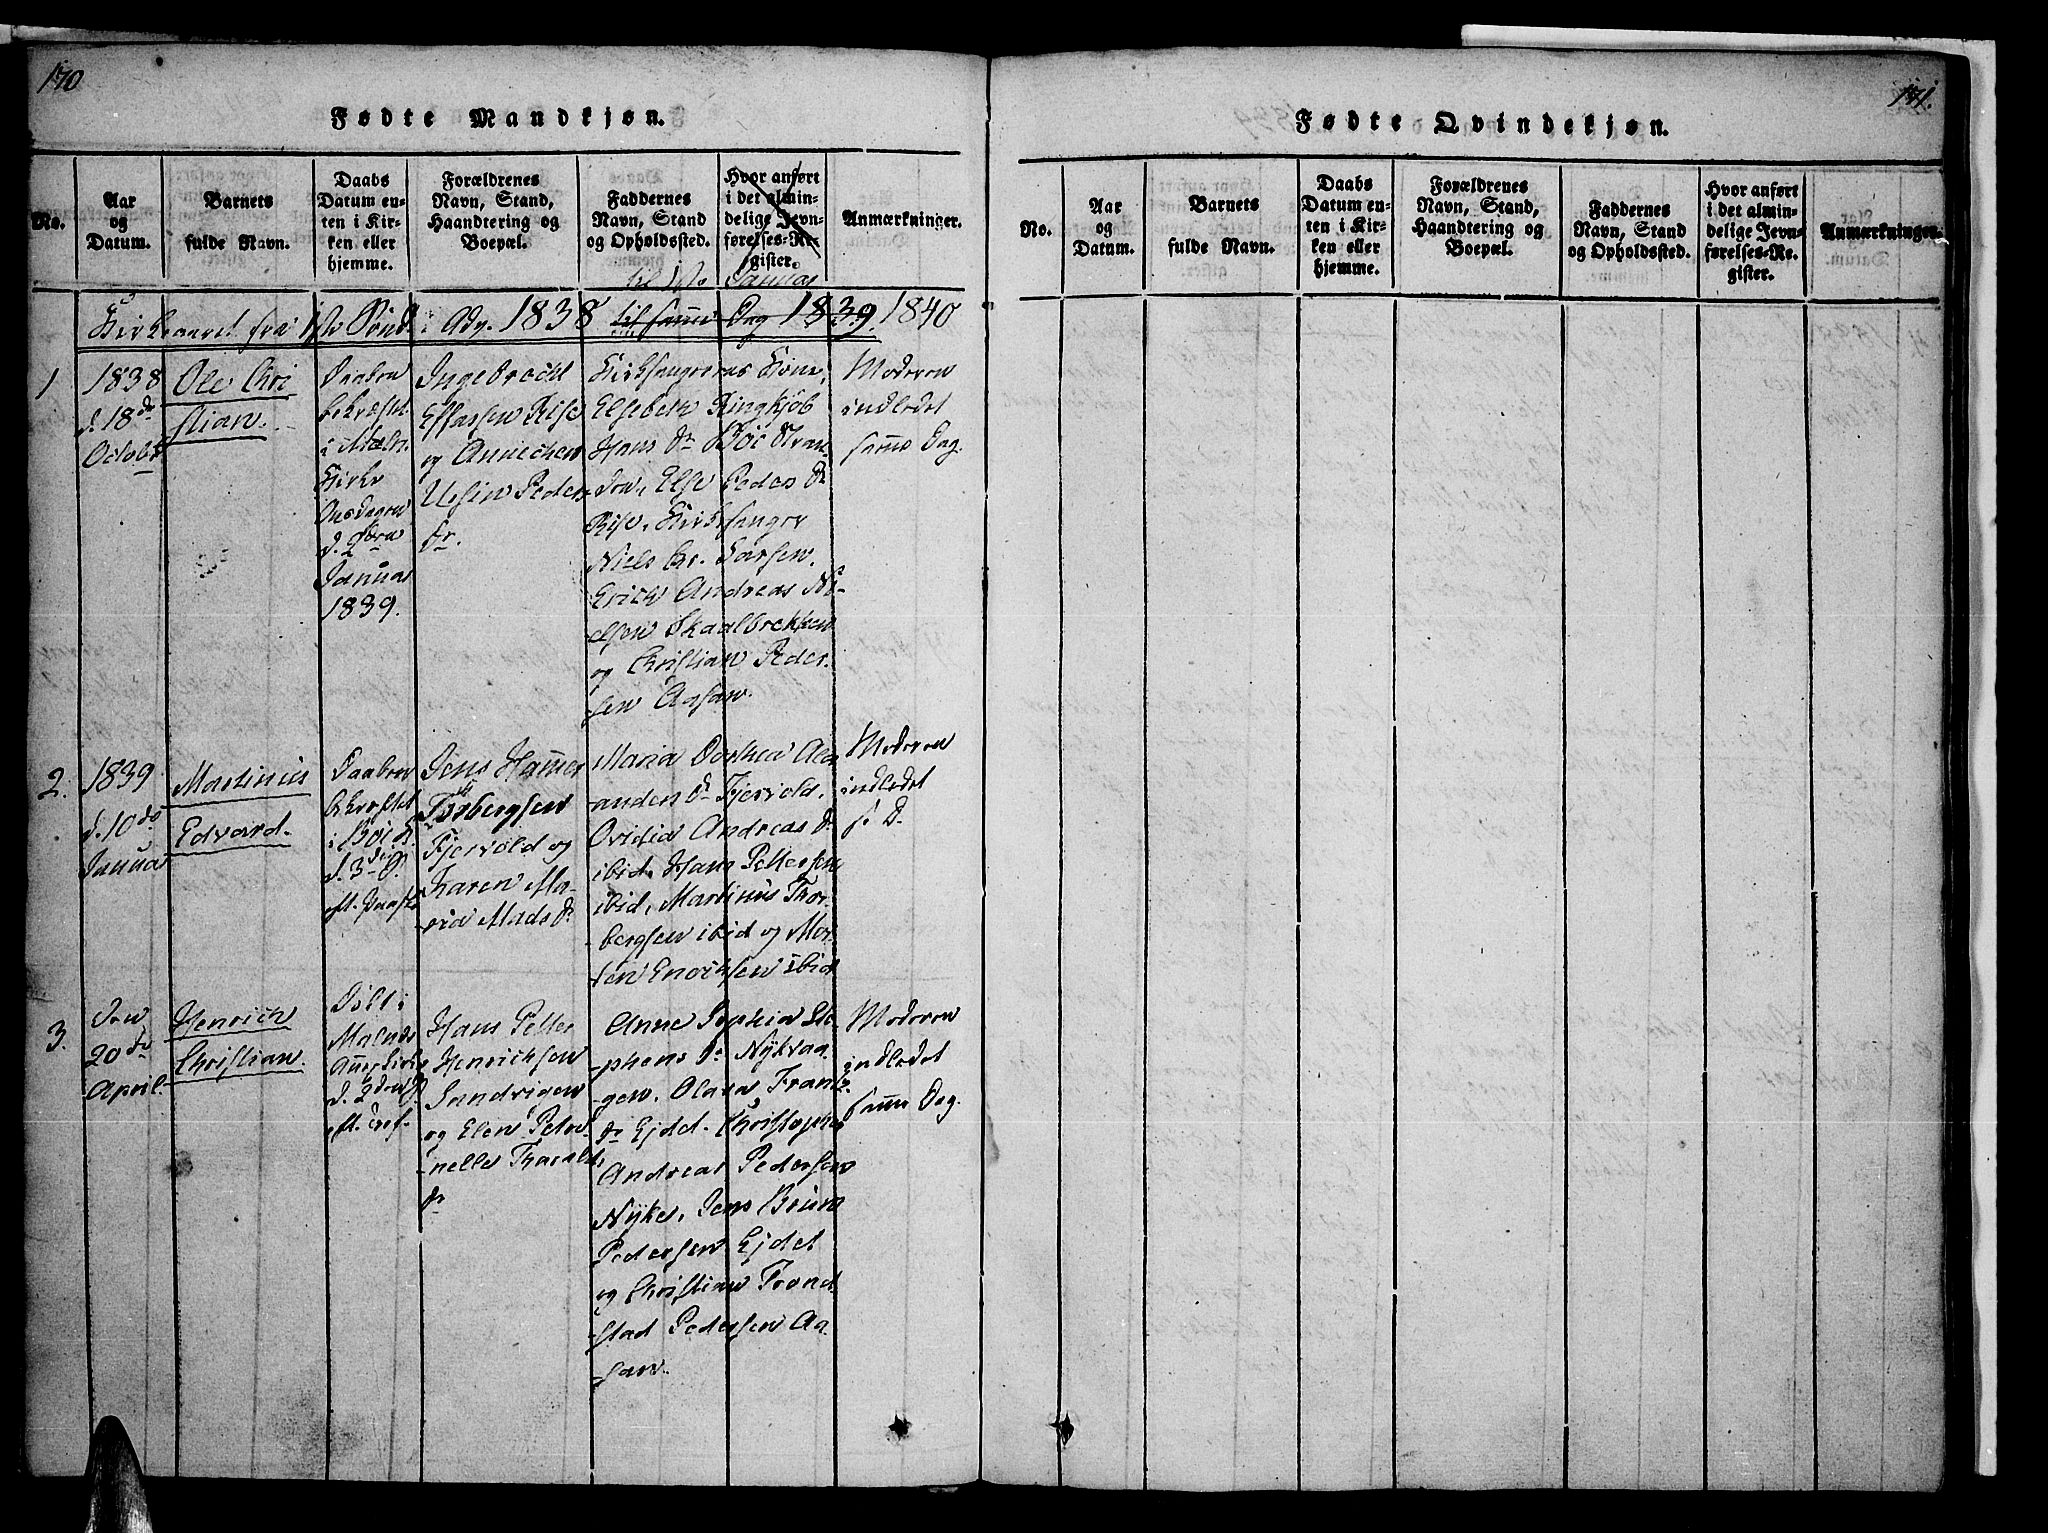 170
Fødte Mandkjøn.
No.
Aar
og
Datum.
Barnets
fulde Navn.
Daabs
Datum en-
ten i Kir-
ken eller
hjemme.
Forældrenes
Navn, Stand,
Haandtering og
Boepæl.
Faddernes
Navn, Stand
og Opholdssted.
Hvor anført
i det almin-
delige Jevn-
førelses-Re-
gister.
Anmærkninger.
til 1ste Januar
Kirkeaaret fra 1ste Sønd. i Adv. 1838 til samme Dag 1839. 1840
1
1838
d. 18de
Octobr
Ole Chri
stian.
Daaben
bekræftet
i Maln.
Kirke
Onsdagen
d. 2den
Januar
1839.
Ingebrecht
Essassen Rise
og Annichen
Ursin Peders
dr.
Kirkesangerens Kone,
Elsebeth Ringkjøb
Hans dr Bøe Stran-
den, Else Peders dr
Rise, Kirkesanger
Niels Chr. Larsen,
Erich Andreas Ni-
elsen Skaalbrekken
og Christian Peder-
sen Aasan.
Moderen
indledet
samme Dag.
2.
1839
d. 10de
Janua
Martinus
Edvard.
Daaben
bekræftet
i Bøe K.
d. 3die S.
eft. Paaske
Jens Hammer
Torbergsen
Fjervold og
Karen Ma-
ria Mads dr
Maria Dorthea Alex
-anden dr Fjervold,
Ovidia Andreas dr
ibid, Hans Pettersen
ibid, Martinus Thor-
bergsen ibid og Mor-
ten Enochsen ibid
Moderen
indledet
s. D.
3.
Den
20de
April.
Henrich
Christian.
Døbt i
Malnæs
Annex Kirke
d. 2den S.
eft. Tref.
Hans Petter
Henrichsen
Sandvigen
og Elen Petro-
nelle Tharalds
dr
Anne Sophia Ste-
phens dr Nykvaa-
gen, Olava Frantz
dr Ejdet. Christopher
Andreas Pedersen
Nyke, Jens Bruun
Pedersen Ejdet
og Christian Frond-
stad Pedersen Aa-
san.
Moderen
indledet
samme Dag.
171.
Fødte Qvindekjøn.
No.
Aar
og
Datum.
Barnets
fulde Navn.
Daabs
Datum en-
ten i Kir-
ken eller
hjemme.
Forældrenes
Navn, Stand,
Haandtering og
Boepæl.
Faddernes
Navn, Stand
og Opholdssted.
Hvor anført
i det almin-
delige Jevn-
førelses-Re-
gister.
Anmærkninger.